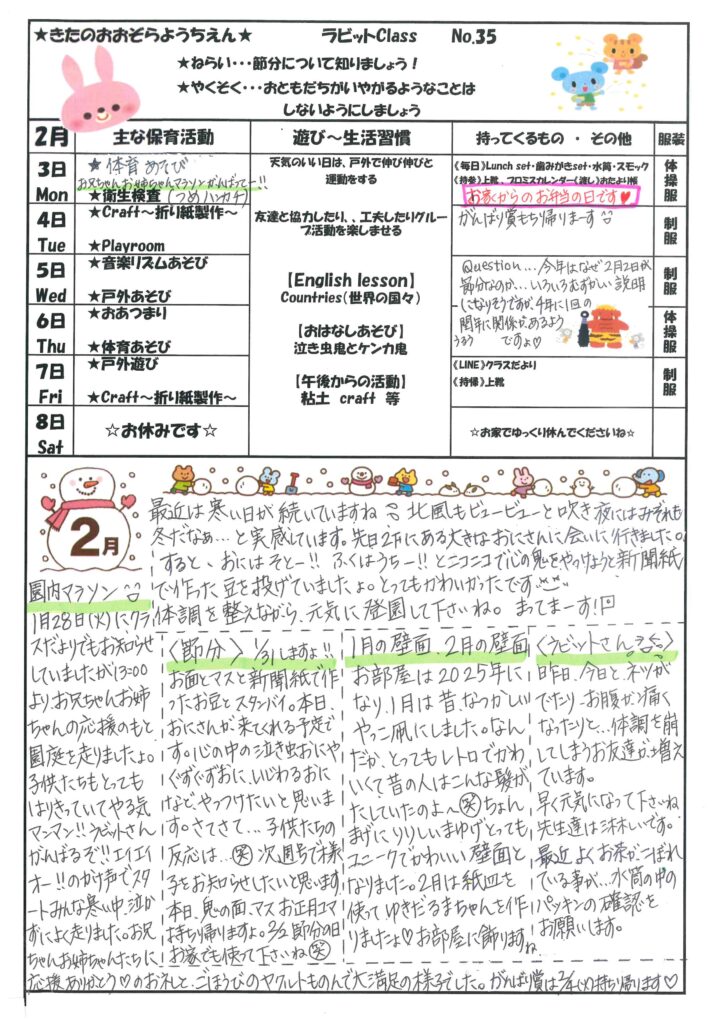 ★きたのおおぞらようちえん★　ラビットClass　No.35
★ねらい・・・節分について知りましょう！
★やくそく・・・おともだちがいやがるようなことは
しないようにしましょう
2月　主な保育活動　遊び～生活習慣　持ってくるもの ・ その他　服装
3日
Mon
★体育あそび
お兄ちゃんお姉ちゃんマラソンがんばってー!!
★衛生検査(つめ ハンカチ)
天気のいい日は、戸外で伸び伸びと
運動をする
《毎日》Lunch set・歯みがきset・水筒・スモック
《持参》上靴、プロミスカレンダー《渡し》おたより帳
お家からのお弁当の日です♥
体操服
4日
Tue
★Craft～折り紙製作～
★Playroom
友達と協力したり、、工夫したりグループ活動を楽しませる
がんばり賞もち帰りまーす
制服
5日
Wed
★音楽リズムあそび
★戸外あそび
【English lesson】
Countries（世界の国々）
Question... 今年はなぜ2月2日が
節分なのか...いろいろむずかしい説明
になりそうですが、4年に1回の
閏年に関係があるよう
うるう　ですよ♡
制服
6日
Thu
★おあつまり
★体育あそび
【おはなしあそび】
泣き虫鬼とケンカ鬼
体操服
7日
Fri
★戸外遊び
★Craft～折り紙製作～
【午後からの活動】
粘土　craft　等
《LINE》クラスだより
《持帰》上靴
制服
8日
Sat
☆お休みです☆
☆お家でゆっくり休んでくださいね☆
2月
最近は寒い日が続いていますね 北風もビュービューと吹き夜にはみぞれも
冬だなぁ...と実感しています。先日2Fにある大きなおにさんに会いに行きました。
すると、おにはそとー!! ふくはうちー!!とニコニコで心の鬼をやっつけようと新聞紙
で作った豆を投げていましたょ。とってもかわいかったです
体調を整えながら、元気に登園して下さいね。まってまーす!
園内マラソン
1月28日(火)にクラ
スだよりでもお知らせ
していましたが13:00
より、お兄ちゃんお姉
ちゃんの応援のもと
園庭を走りましたょ。
子供たちもとっても
はりきっていてやる気
マンマン!!ラビットさん
がんばるぞ!!エイエイ
オー!!のかけ声でスタ
ートみんな寒い中、泣か
ずによく走りました。お兄
ちゃんお姉ちゃんたちに
応援ありがとう♡のお礼と、ごほうびのヤクルトものんで大満足の様子でした。がんばり賞は2/4(火)持ち帰ります♡
〈節分〉1/31しますよ!!
お面とマスと新聞紙で作
ったお豆とスタンバイ。本日、
おにさんが来てくれる予定で
す。心の中の泣き虫おにや
ぐずぐずおに、いじわるおに
などやっつけたいと思いま
す。さてさて...子供たちの
反応は...笑 次週号で様
子をお知らせしたいと思います
本日、鬼の面、マスお正月コマ
持ち帰りますょ。2/2節分の日
お家でも使って下さいね笑
1月の壁面、2月の壁面
お部屋は2025年に
なり、1月は昔、なつかしい
やっこ凧にしました。なん
だか、とってもレトロでかわ
いくて昔の人はこんな髪が
たしていたのよへ笑ちょん
まげにりりしいまゆげとっても
ユニークでかわいい壁面と
なりました。2月は紙皿を
使ってゆきだるまちゃんを作
りましたょ♡お部屋に飾りますね
〈ラビットさん〉
昨日、今日と、ネツが
でたり...お腹が痛く
なったりと...体調を崩
してしまうお友達が増え
ています。
早く元気になって下さいね
先生達は淋しいです。
最近よくお茶がこぼれ
ている事が...水筒の中の
パッキンの確認を
お願いします。